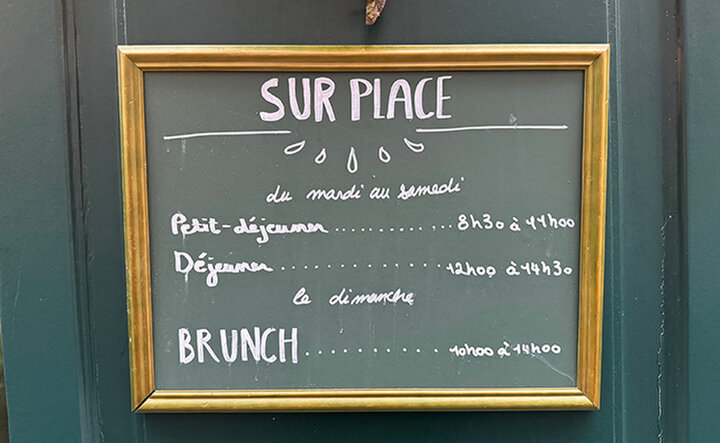 SUR PLACE
du mardi au samedi
Petit-déjeuner .............. 8h30 à 11h00
Déjeuner .................... 12h00 à 14h30
le dimanche
BRUNCH .............. 10h00 à 14h00